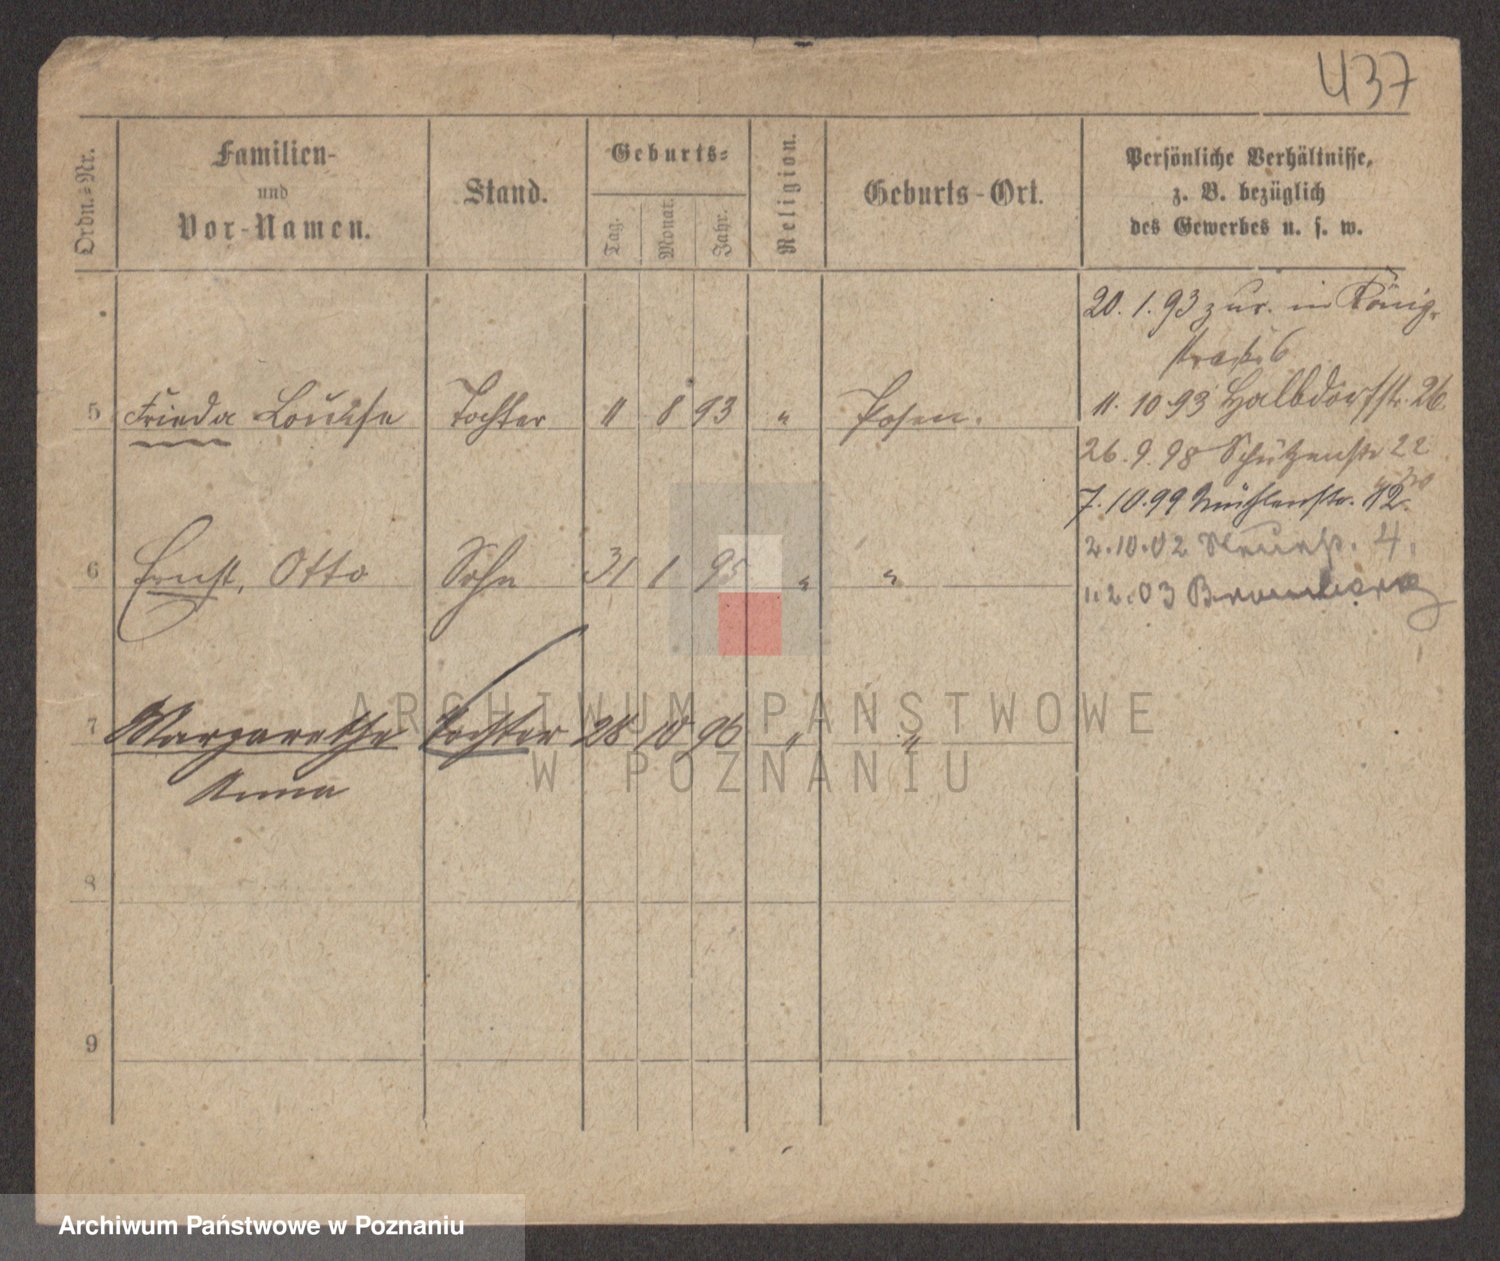 437
Ordn.-Nr.
Familien-
und
Vor-Namen.
Stand.
Geburts-
Tag.
Monat.
Jahr.
Religion.
Geburts-Ort.
Persönliche Verhältnisse,
z. B. bezüglich
des Gewerbes u. s. w.
20. 1. 93 zur. in König-
straße 6
5 Frieda Louise Tochter 11 8 93 " Posen.
11. 10 93 Halbdorfstr. 26
26. 9. 98 Schützenstr 22
7. 10. 99 Mühlenstr. 12
6 Ernst, Otto Sohn 31 1 95 " "
2. 10. 02 4.
1. 2. 03 Bromberg
7 Margarethe Tochter 28 10 96 " "
Anna
8
9
ARCHIWUM PAŃSTWOWE
W POZNANIU
Archiwum Państwowe w Poznaniu